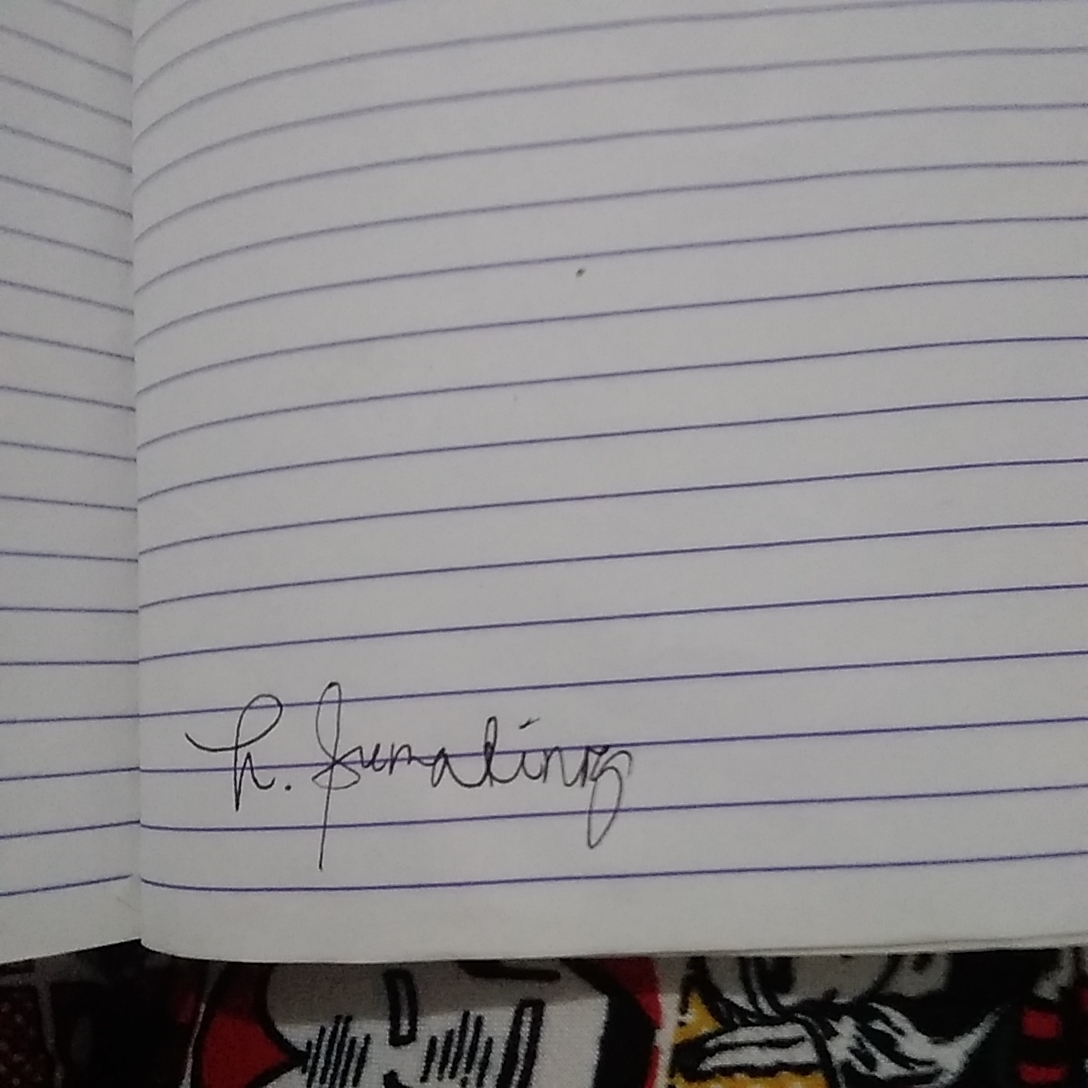 h. Sumalinog